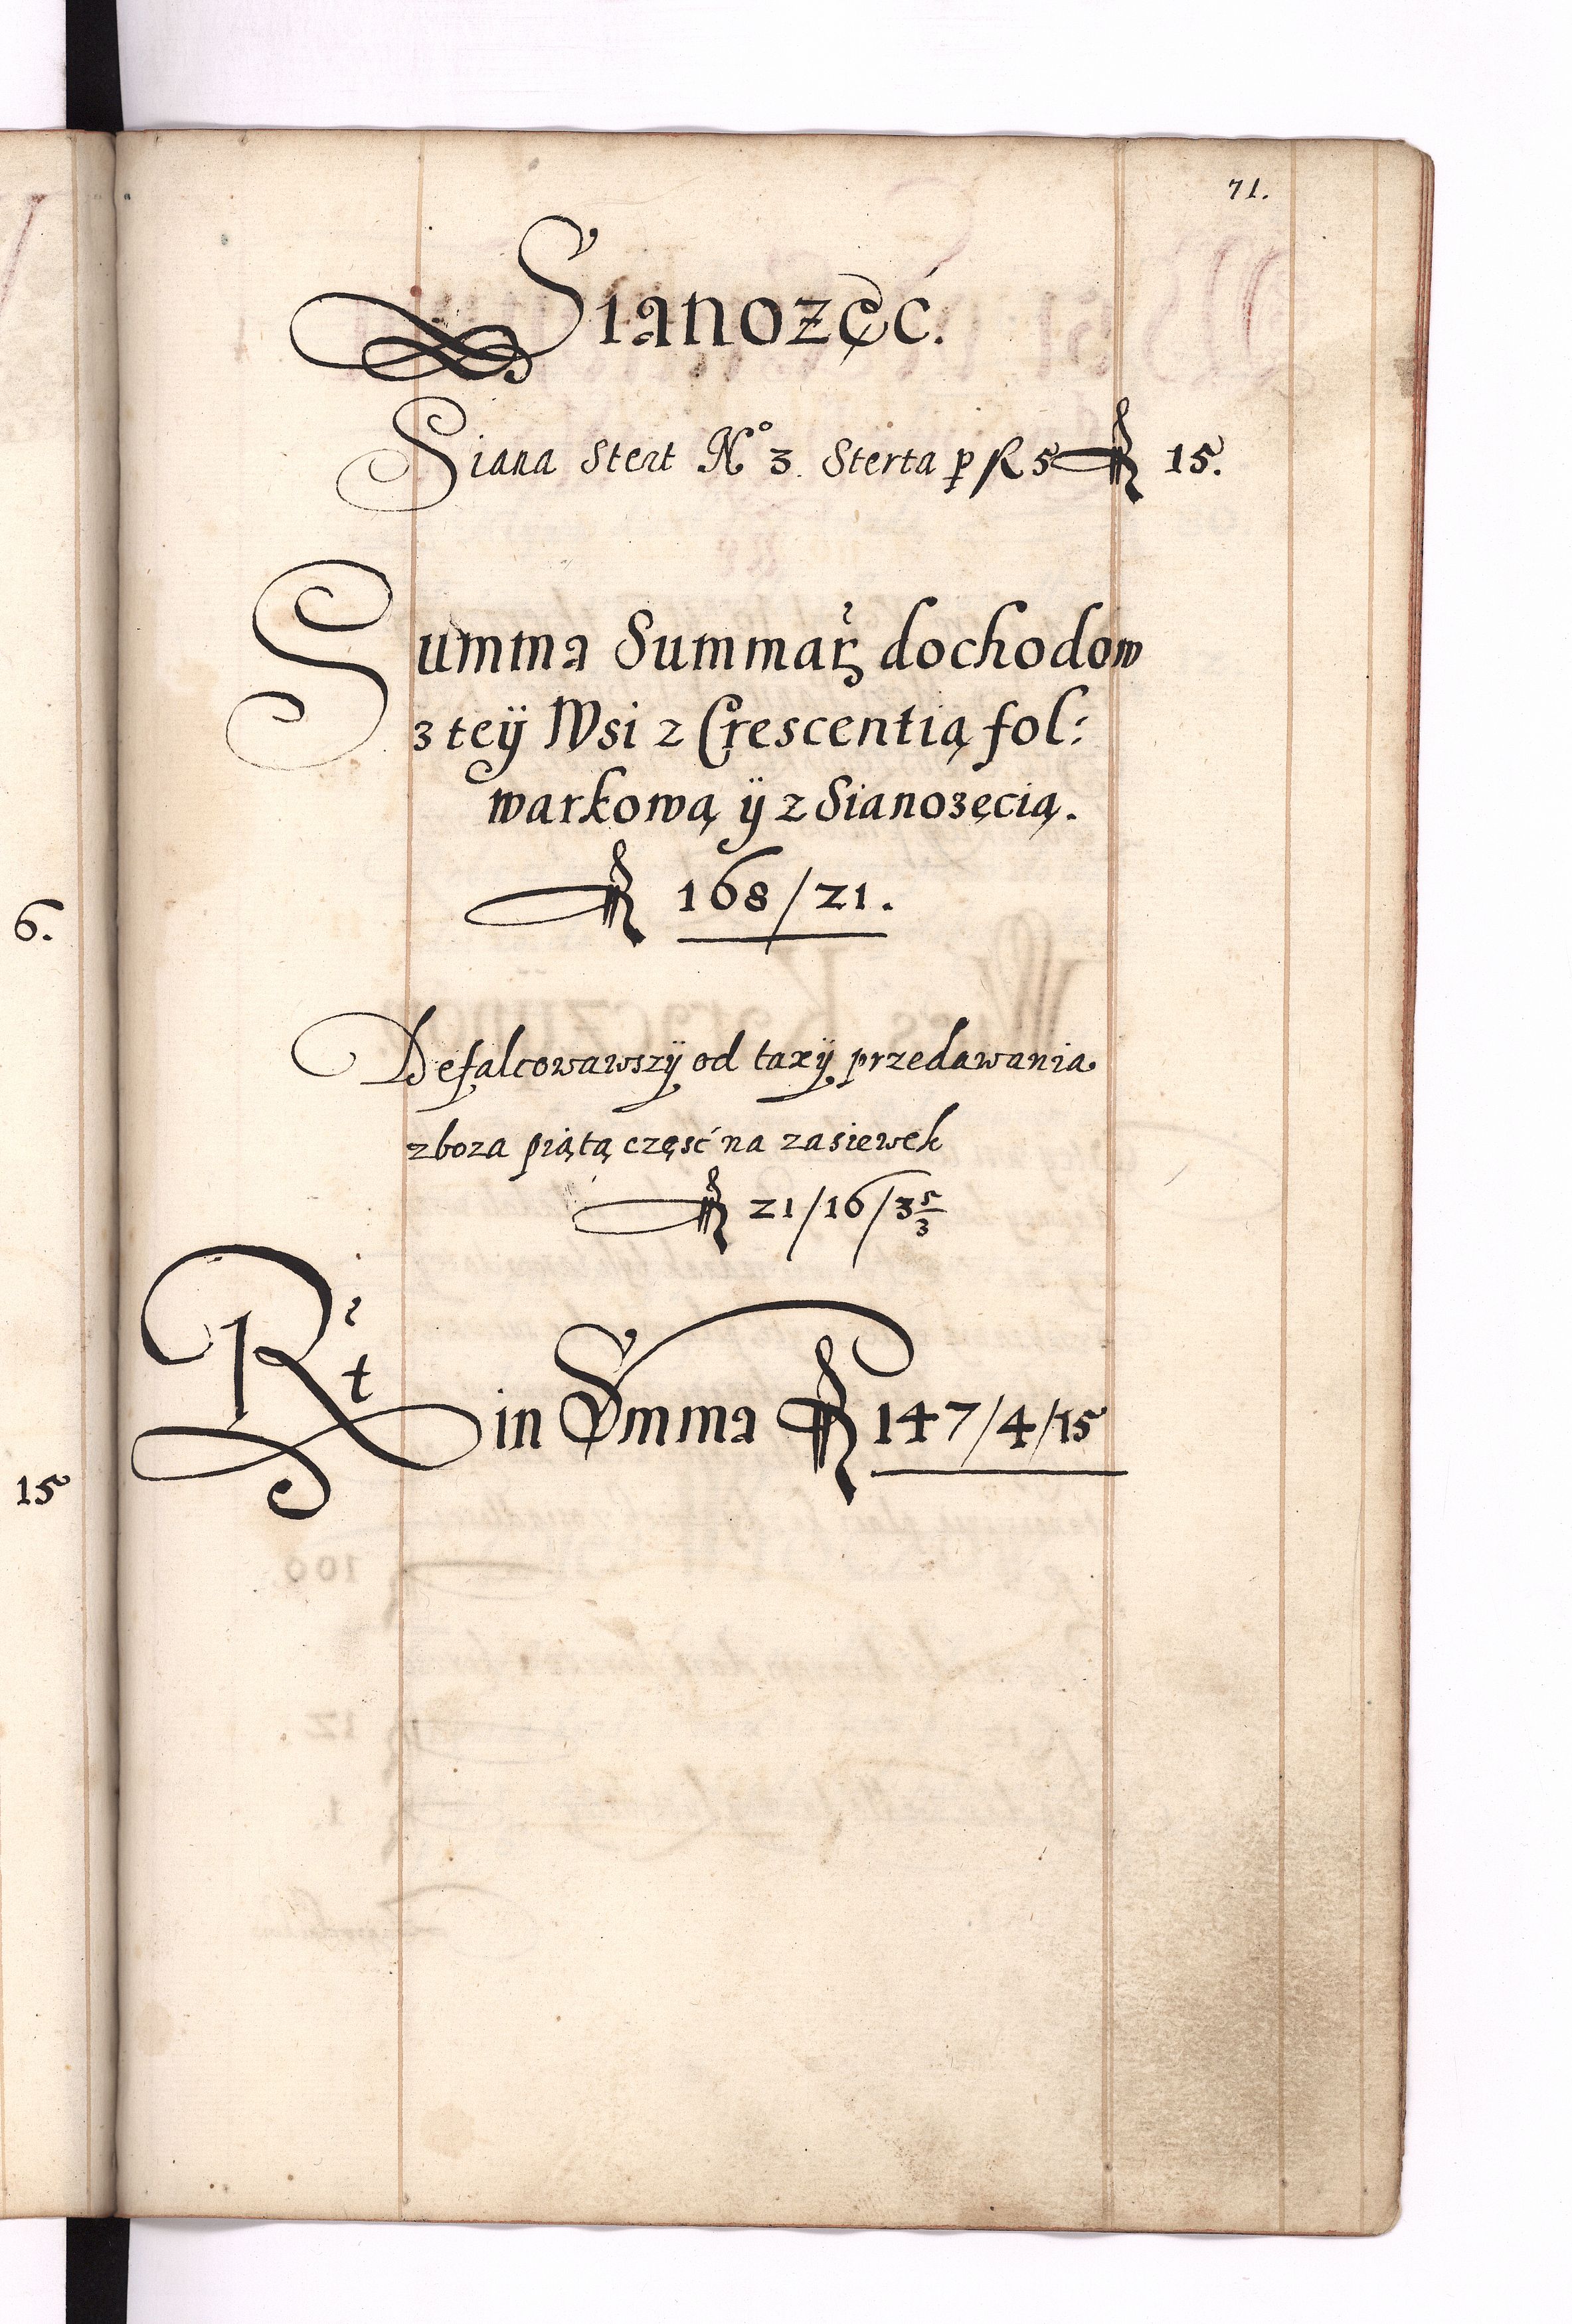 71.
Sianozęć.
Siana Stert No 3. Sterta p R 5 R 15.
Summa Summarz dochodow
z teÿ Wsi z Crescentią fol:
warkową ÿ z Sianozęcią.
R 168/21.
Defalcowawszÿ od taxÿ przedawania
zboza piątą część na zasiewek
R 21/16/3 5/3
Rit in Summa R 147/4/15
6.
15